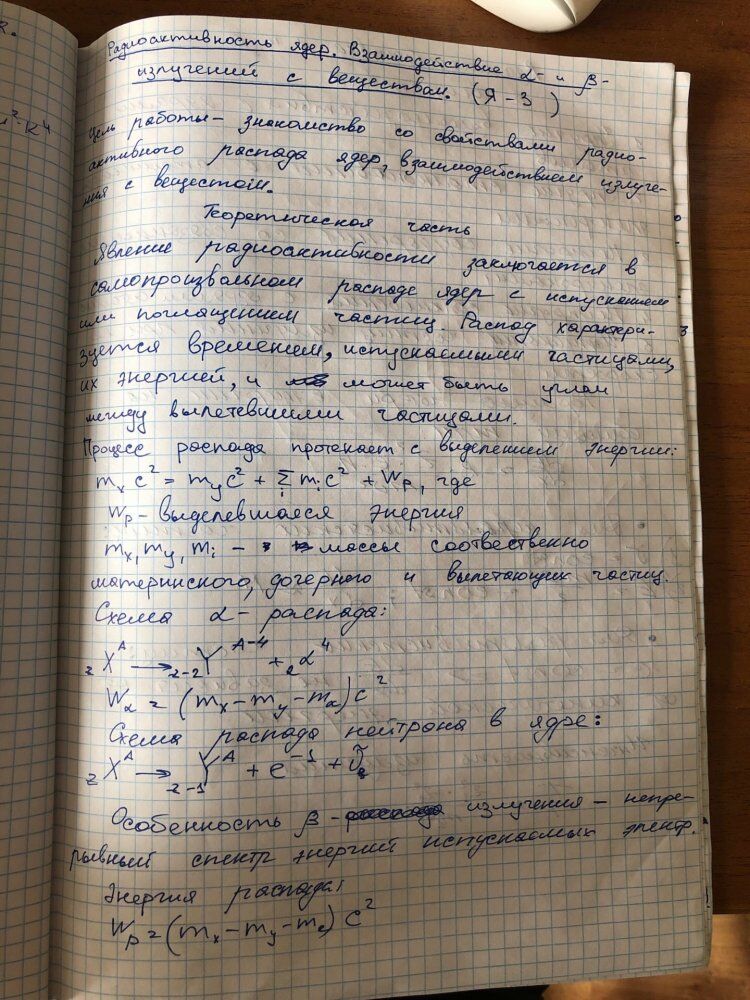 Радиоактивность ядер. Взаимодействие α- и β-
излучений с веществом. (Я-3)
Цель работы - знакомство со свойствами радио-
активного распада ядер, взаимодействием излуче-
ния с веществом.
Теоретическая часть
Явление радиоактивности заключается в
самопроизвольном распаде ядер с испусканием
или поглощением частиц. Распад характери-
зуется временем, испускаемыми частицами,
их энергией, и может быть углом
между вылетевшими частицами.
Процесс распада протекает с выделением энергии:
mₓc² = m_y c² + Σᵢ mᵢc² + Wp, где
Wp - выделевшаяся энергия
mₓ, m_y, mᵢ - массы соотвественно
материнского, дочернего и вылетающих частиц.
Схема α - распада:
zXᴬ → z-2Yᴬ⁻⁴ + ₂α⁴
Wα = (mₓ - m_y - mα)c²
Схема распада нейтрона в ядре:
zXᴬ → z-1Yᴬ + e⁻¹ + ṽ
Особенность β- излучения - непре-
рывный спектр энергий испускаемых электр.
Энергия распада:
Wβ = (mₓ - m_y - mₑ)c²